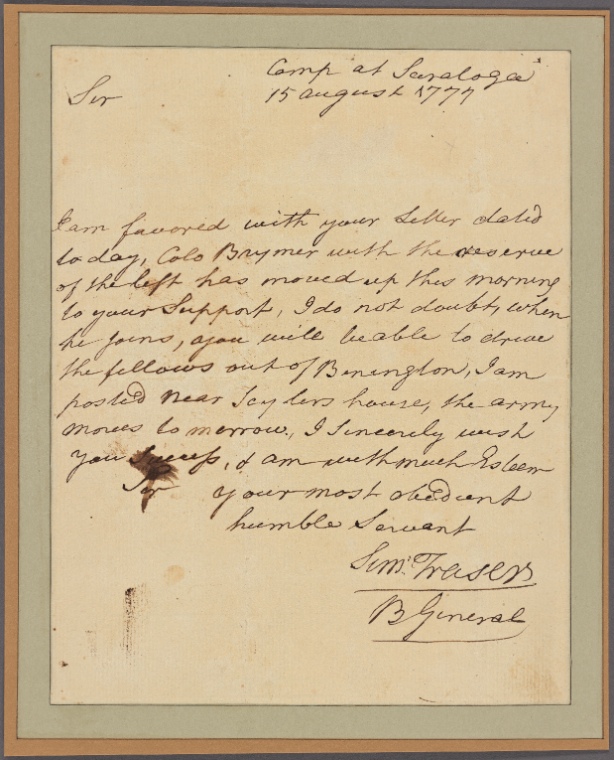 Camp at Saratoga
Sir
15 august 1777
I am favored with your Letter dated
to day, Colo Brymer with the reserve
of the left has moved up this morning
to your Support, I do not doubt, when
he joins, you will be able to drive
the fellows out of Benington, I am
posted near Scylers house, the army
moves to morrow, I Sincerely wish
you Success, & am with much Esteem
Sir your most obedient
humble Servant
Simn. Fraser
B General